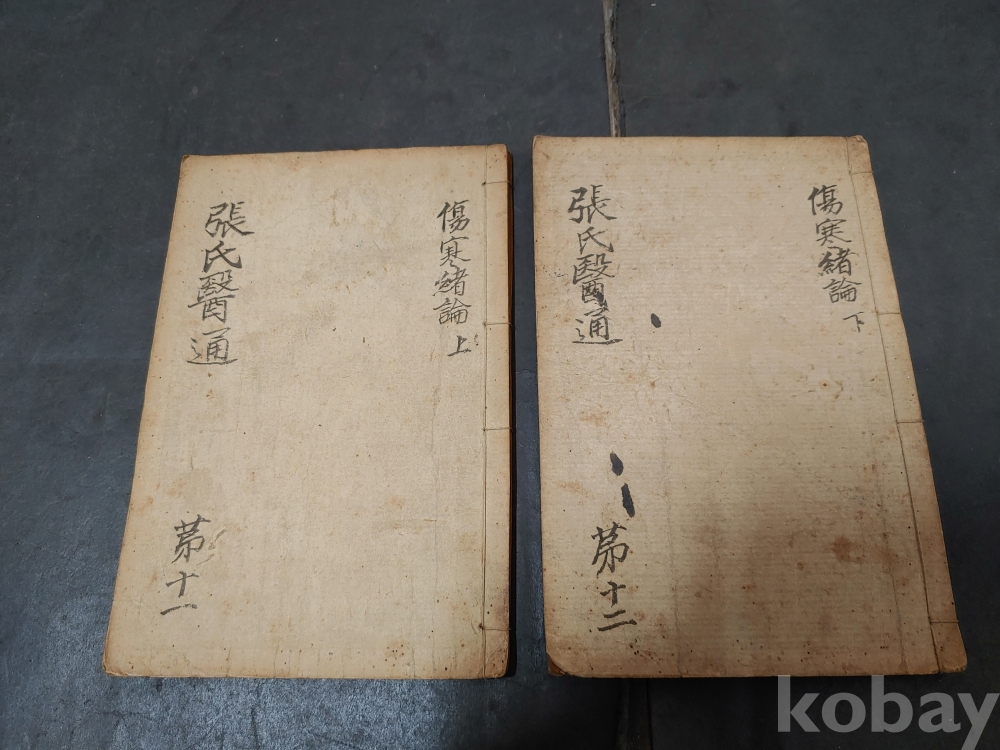 張氏醫通
傷寒緒論 上
苐十一
張氏醫通
傷寒緒論 下
苐十二
kobay